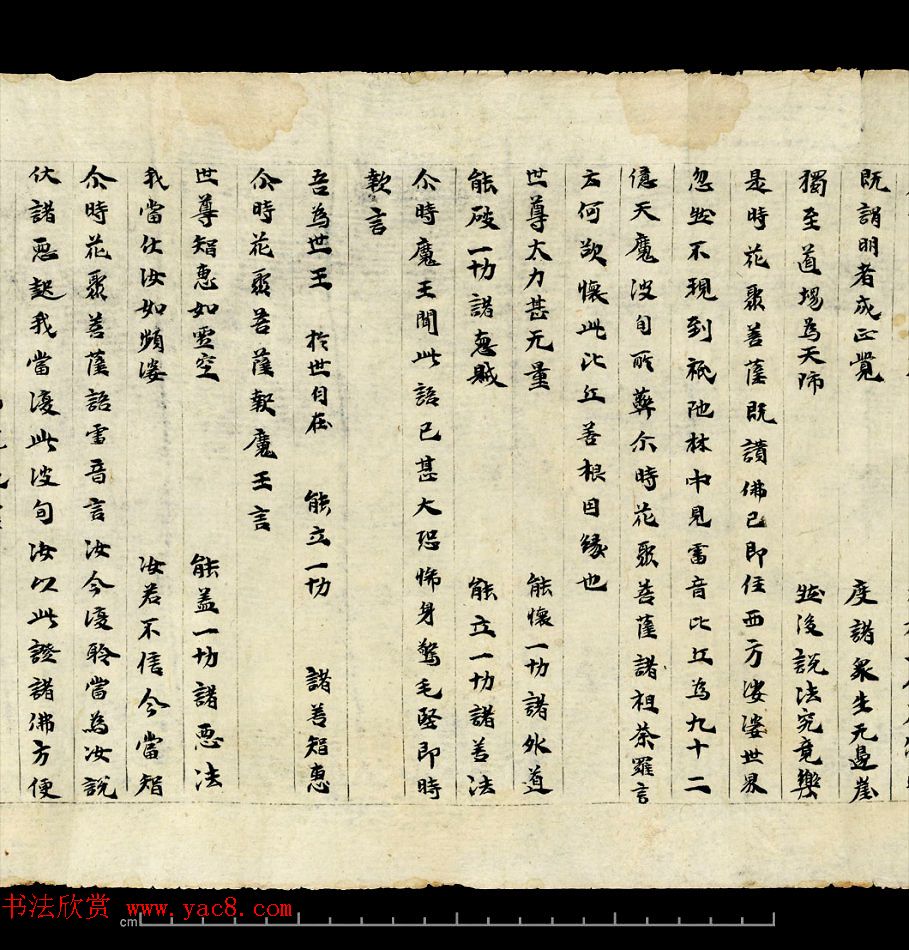 既謂明者成正覺 度諸衆生无邊崖
獨至道場為天師 然後說法究竟樂
是時花聚菩薩既讃佛已即住西方娑婆世界
忽然不現到祇陁林中見雷音比丘為九十二
億天魔波旬所弊尒時花聚菩薩諸祖荼羅言
云何欲懷此比丘善根因緣也
世尊大力甚无量 能懷一切諸外道
能破一切諸惡賊 能立一切諸善法
尒時魔王聞此語已甚大恐怖身驚毛竪即時
軟言
吾為世王 於世自在 能立一切 諸善智惠
尒時花聚菩薩報魔王言
世尊智惠如虛空 能盖一切諸惡法
我當仕汝如頻婆 汝若不信今當智
尒時花聚菩薩語雷音言汝今復聆當為汝說
伏諸惡起我當復此波旬汝以此證諸佛方便
书法欣赏 www.yac8.com
cm